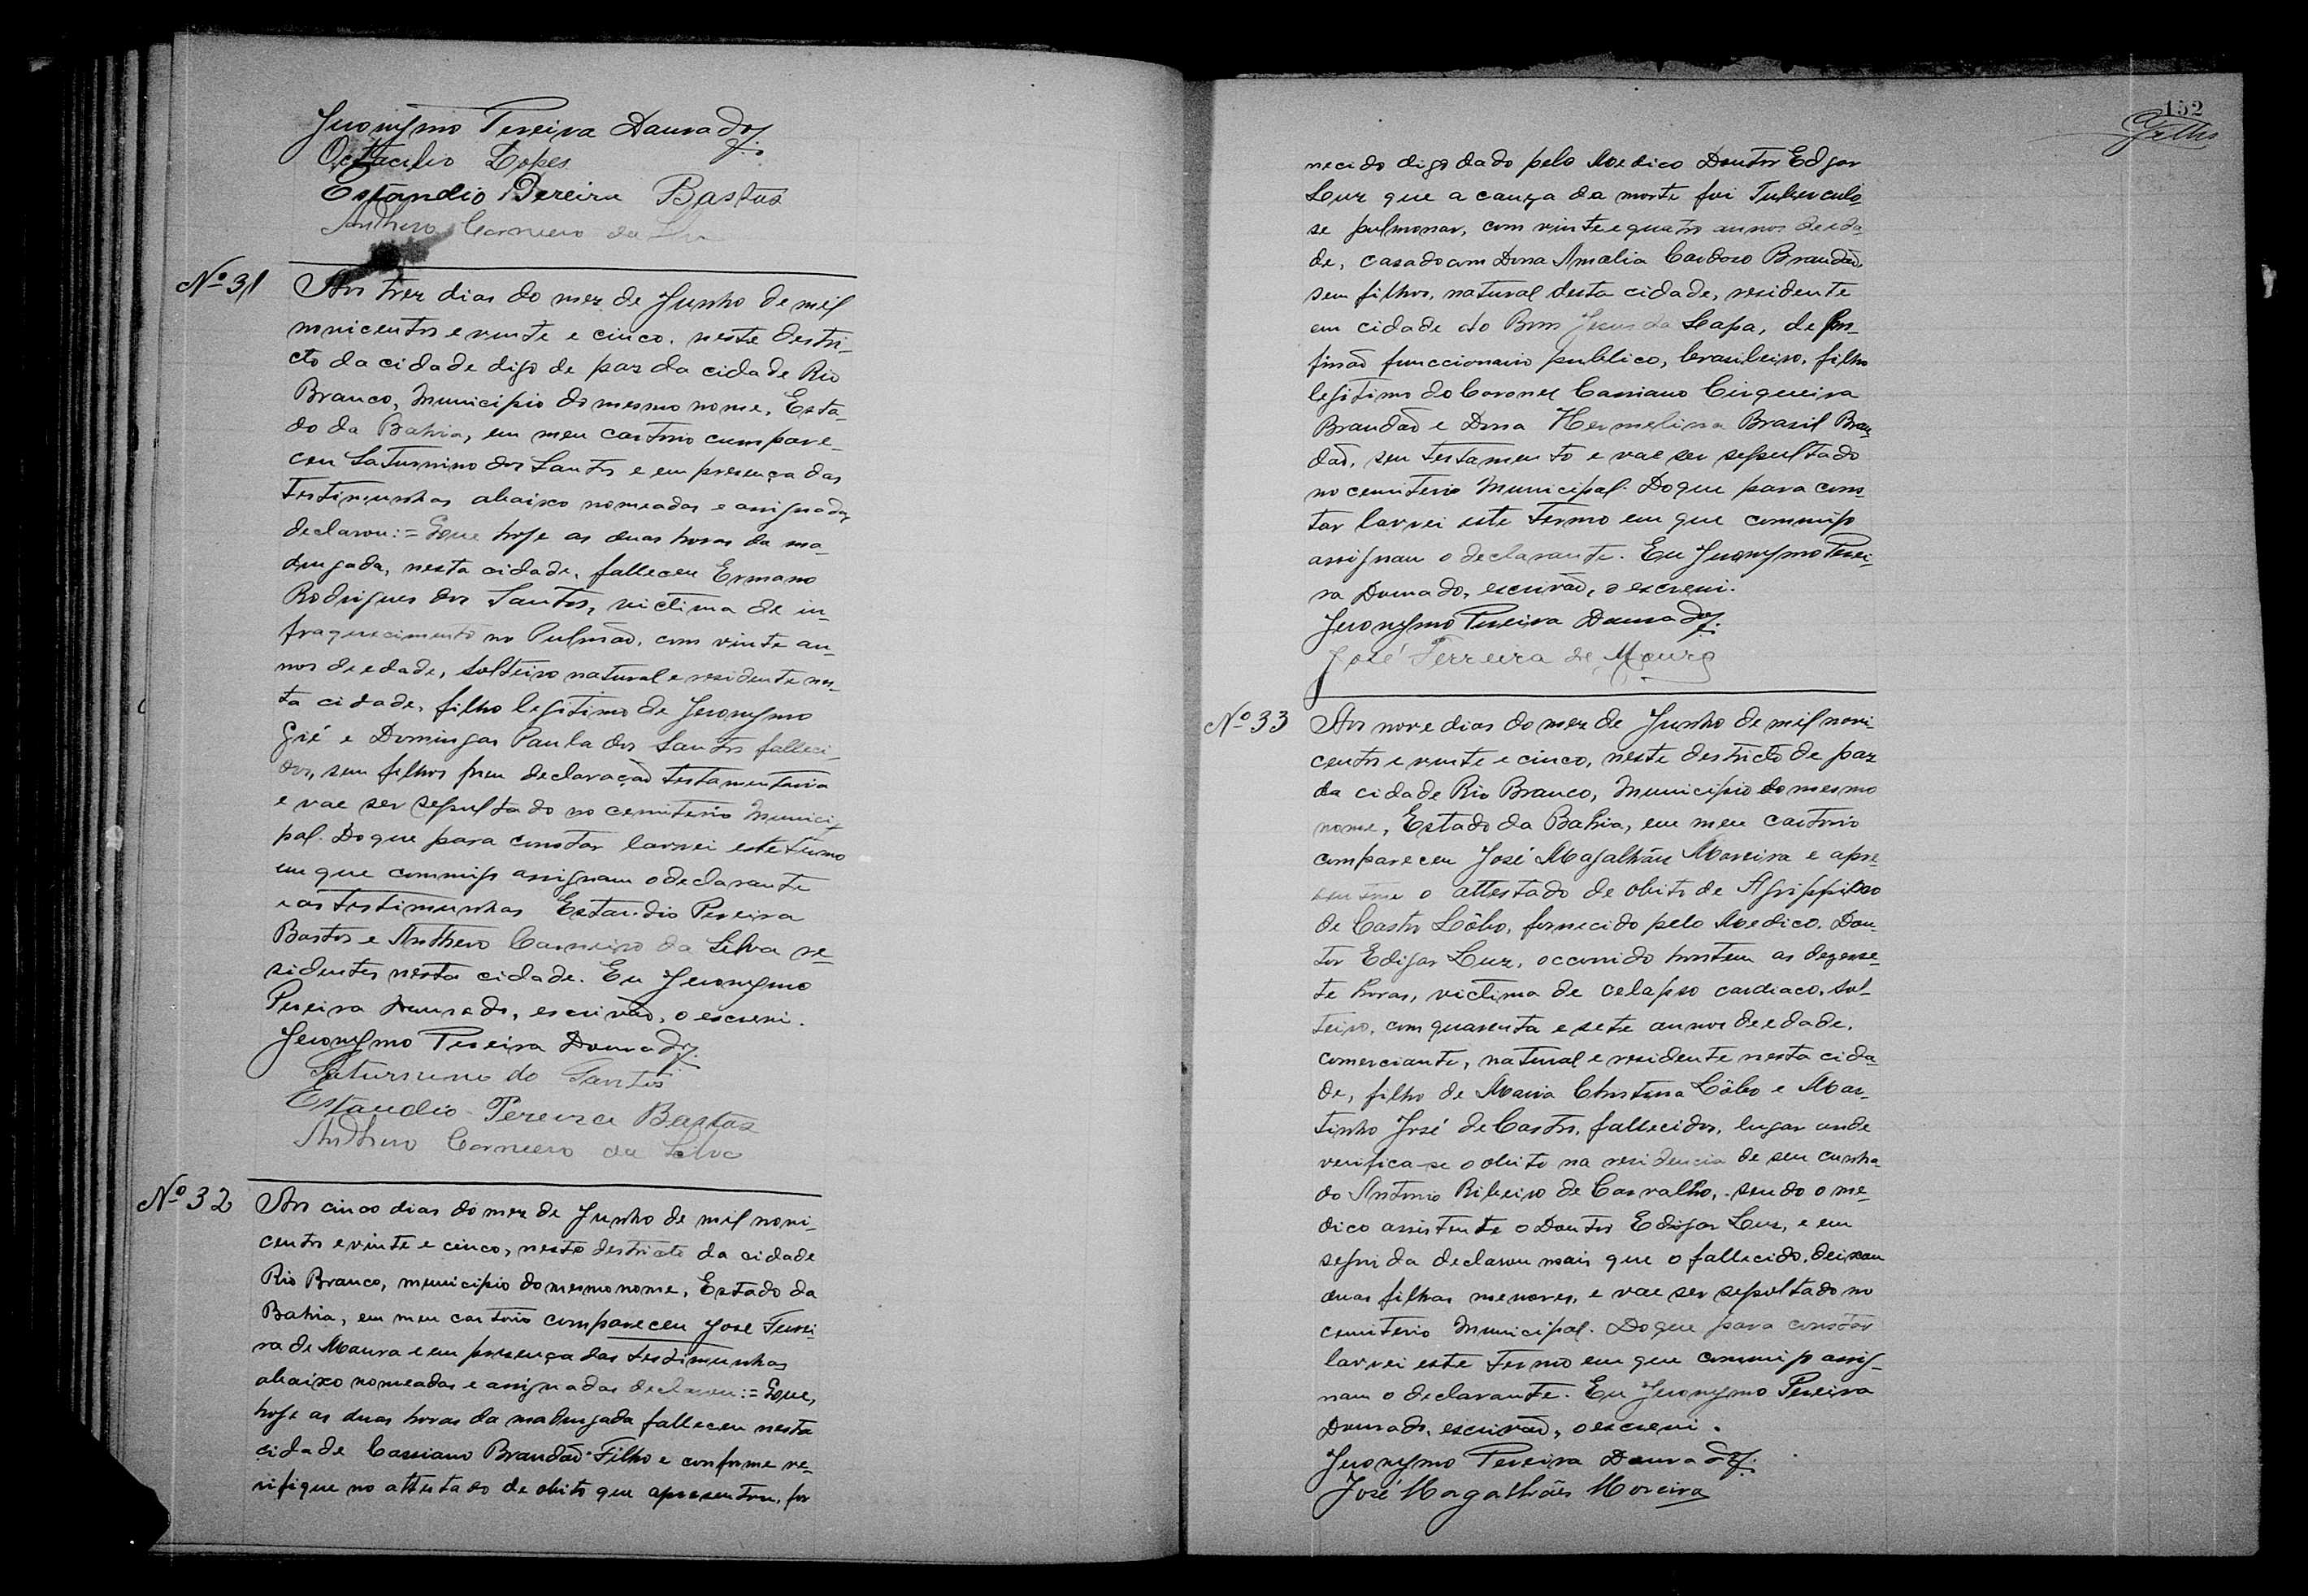 Jeronymo Pereira Dourado
Octacilio Lopes
Estandio Pereira Bastos
Anthero Carneiro da
Nº 31 Aos trez dias do mez de Junho de mil
novicentos e vinte e cinco, neste destri-
cto da cidade digo de paz da cidade Rio
Branco, Municipio do mesmo nome, Esta-
do da Bahia, em meu cartorio compare-
ceu Saturnino dos Santos e em presença das
testimunhas abaixo nomeadas e assignadas
declarou:= Que hoje as duas horas da ma-
drugada, nesta cidade, falleceu Ermano
Rodrigues dos Santos, victima de in-
fraquecimento no Pulmão, com vinte an-
nos de edade, solteiro natural e residente nes-
ta cidade, filho legitimo de Jeronymo
Gié e Domingas Paula dos Santos falleci-
dos, sem filhos sem declaração testamentaria
e vae ser sepultado no cemiterio Munici-
pal. Do que para constar lavrei este termo
em que commigo assignam o declarante
e as testimunhas Estandio Pereira
Bastos e Anthero Carneiro da Silva re-
sidentes nesta cidade. Eu Jeronymo
Pereira Dourado, escrivão, o escrevi.
Jeronymo Pereira Dourado
Saturnino do Santos
Estandio Pereira Bastos
Anthero Carneiro da Silva
Nº 32 Aos cinco dias do mez de Junho de mil novi-
centos e vinte e cinco, neste destricto da cidade
Rio Branco, municipio do mesmo nome, Estado da
Bahia, em meu cartorio compareceu José Ferrei-
ra de Moura e em presença das testimunhas
abaixo nomeadas e assignadas declarou:= Que,
hoje as duas horas da madrugada falleceu nesta
cidade Cassiano Brandão Filho e conforme ve-
rifique no attestado de obito que apresentou, for
132
necido digo dado pelo Medico Doutor Edgar
Luz que a cauza da morte foi Tuberculo-
se pulmonar, com vinte e quatro annos de eda-
de, casado com Dona Amalia Cardoso Brandão,
sem filhos, natural desta cidade, residente
em cidade do Bom Jesus da Lapa, de pro-
fissão funccionario publico, brasileiro, filho
legitimo do Coronel Cassiano Cirqueira
Brandão e Dona Hermelina Brasil Bran-
dão, sem testamento e vae ser sepultado
no cemiterio Municipal. Do que para cons-
tar lavrei este termo em que commigo
assignam o declarante. Eu Jeronymo Perei-
ra Dourado, escrivão, o escrevi.
Jeronymo Pereira Dourado
José Ferreira de Moura
Nº 33 Aos nove dias do mez de Junho de mil novi-
centos e vinte e cinco, neste destricto de paz
da cidade Rio Branco, Municipio do mesmo
nome, Estado da Bahia, em meu cartorio
compareceu José Magalhães Moreira e apre-
sentou o attestado de obito de Agrippino
de Castro Lôbo, fornecido pelo Medico, Dou-
tor Edigar Luz, occorrido hontem as dezese-
te horas, victima de colapso cardiaco, sol-
teiro, com quarenta e sete annos de edade,
comerciante, natural e residente nesta cida-
de, filho de Maria Christina Lôbo e Mar-
tinho José de Castro, fallecidos, lugar onde
verifica-se o obito na residencia de seu cunha-
do Antonio Ribeiro de Carvalho, sendo o me-
dico assistente o Doutor Edigar Luz, e em
seguida declarou mais que o fallecido, deixou
duas filhas menores, e vae ser sepultado no
cemiterio Municipal. Do que para constar
lavrei este termo em que commigo assig-
nam o declarante. Eu Jeronymo Pereira
Dourado, escrivão, o escrevi.
Jeronymo Pereira Dourado
José Magalhães Moreira